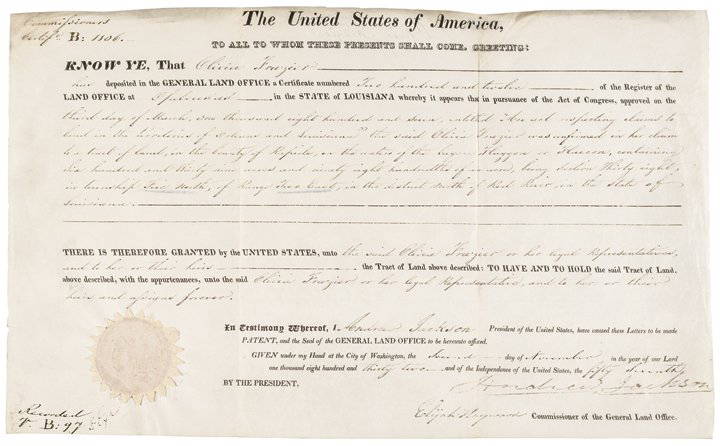 Commissioners
Certife. B: 1806.
The United States of America,
TO ALL TO WHOM THESE PRESENTS SHALL COME, GREETING:
KNOW YE, That Olivia Frazier
has deposited in the GENERAL LAND OFFICE a Certificate numbered Two hundred and twelve of the Register of the
LAND OFFICE at Opelousas in the STATE of LOUISIANA whereby it appears that in pursuance of the Act of Congress, approved on the
third day of March, one thousand eight hundred and seven, entitled "An act respecting claims to
land in the Territories of Orleans and Louisiana" the said Olivia Frazier was confirmed in her claim
to a tract of land, in the County of Rapide, on the waters of the bayou or containing
Six hundred and thirty nine acres and ninety eight hundredths of an acre, being Section Thirty eight,
in township Two North, of Range Two East, in the district North of Red River, in the State of
Louisiana.
THERE IS THEREFORE GRANTED by the UNITED STATES, unto the said Olivia Frazier or her legal Representatives,
and to her or their heirs the Tract of Land above described: TO HAVE AND TO HOLD the said Tract of Land,
above described, with the appurtenances, unto the said Olivia Frazier or her legal Representatives, and to her or their
heirs and assigns forever.
In Testimony Whereof, I, Andrew Jackson President of the United States, have caused these Letters to be made
PATENT, and the Seal of the GENERAL LAND OFFICE to be hereunto affixed.
GIVEN under my Hand at the City of Washington, the Second day of November in the year of our Lord
one thousand eight hundred and thirty two and of the Independence of the United States, the fifty seventh
BY THE PRESIDENT, Andrew Jackson
Elijah Hayward Commissioner of the General Land Office.
Recorded
V. B: 97